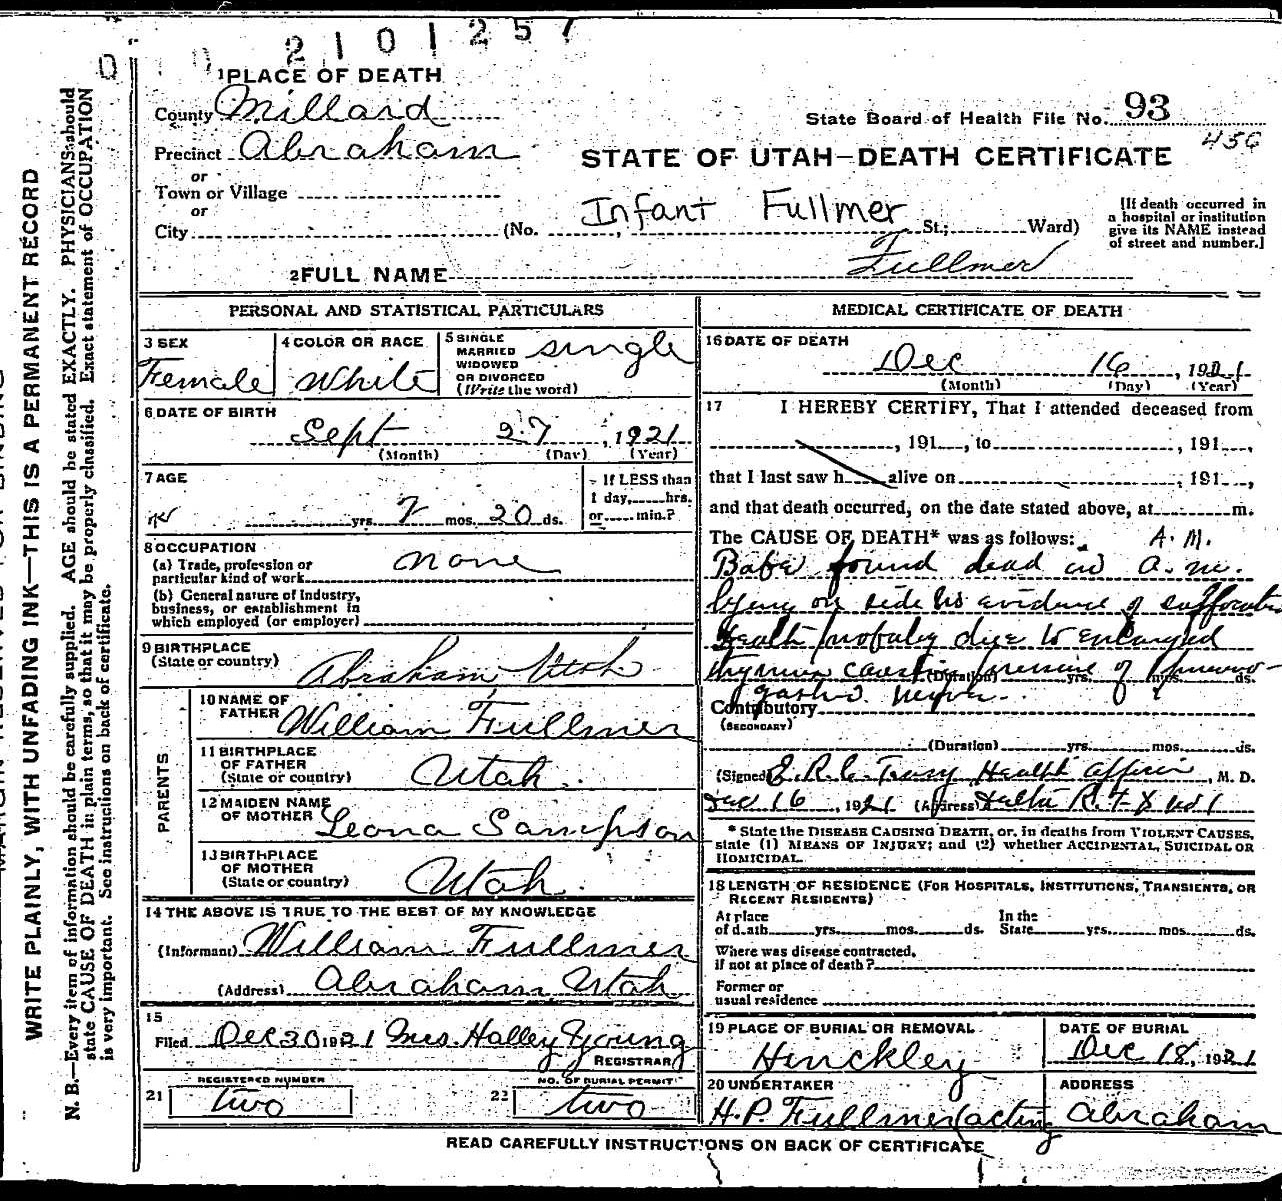 2101257
1 PLACE OF DEATH
County Millard
State Board of Health File No. 93
Precinct Abraham
456
STATE OF UTAH—DEATH CERTIFICATE
or
Town or Village
or
City (No. Infant Fullmer St.; Ward)
[If death occurred in
a hospital or institution
give its NAME instead
of street and number.]
2 FULL NAME Fullmer
PERSONAL AND STATISTICAL PARTICULARS
3 SEX
Female
4 COLOR OR RACE
White
5 SINGLE
MARRIED
WIDOWED
OR DIVORCED
(Write the word)
single
6 DATE OF BIRTH
Sept 27, 1921
(Month) (Day) (Year)
7 AGE
yrs. 2 mos. 20 ds.
If LESS than
1 day, hrs.
or min.?
8 OCCUPATION
(a) Trade, profession or
particular kind of work
none
(b) General nature of industry,
business, or establishment in
which employed (or employer)
9 BIRTHPLACE
(State or country) Abraham Utah
PARENTS
10 NAME OF
FATHER William Fullmer
11 BIRTHPLACE
OF FATHER
(State or country) Utah
12 MAIDEN NAME
OF MOTHER Leona Sampson
13 BIRTHPLACE
OF MOTHER
(State or country) Utah
14 THE ABOVE IS TRUE TO THE BEST OF MY KNOWLEDGE
(Informant) William Fullmer
(Address) Abraham, Utah
15
Filed Dec 30 1921 Mrs. Halley Young
REGISTRAR
21 REGISTERED NUMBER
two
22 NO. OF BURIAL PERMIT
two
MEDICAL CERTIFICATE OF DEATH
16 DATE OF DEATH
Dec 16, 1921
(Month) (Day) (Year)
17 I HEREBY CERTIFY, That I attended deceased from
, 191 , to , 191 ,
that I last saw h alive on , 191 ,
and that death occurred, on the date stated above, at m.
The CAUSE OF DEATH* was as follows: A. M.
Babe found dead in a. m.
lying on side No evidence of suffocation
Death probably due to enlarged
thymus causing pressure of pneumo-
(Duration) yrs. mos. ds.
gastric
Contributory
(SECONDARY)
(Duration) yrs. mos. ds.
(Signed) E. R. C. Health Officer, M. D.
Dec 16, 1921 (Address) Delta
* State the DISEASE CAUSING DEATH, or, in deaths from VIOLENT CAUSES,
state (1) MEANS OF INJURY; and (2) whether ACCIDENTAL, SUICIDAL OR
HOMICIDAL.
18 LENGTH OF RESIDENCE (FOR HOSPITALS, INSTITUTIONS, TRANSIENTS, OR
RECENT RESIDENTS)
At place
of death yrs. mos. ds.
In the
State yrs. mos. ds.
Where was disease contracted,
if not at place of death?
Former or
usual residence
19 PLACE OF BURIAL OR REMOVAL
Hinckley
DATE OF BURIAL
Dec 18, 1921
20 UNDERTAKER
H. P. Fullmer (acting
ADDRESS
Abraham
READ CAREFULLY INSTRUCTIONS ON BACK OF CERTIFICATE
WRITE PLAINLY, WITH UNFADING INK—THIS IS A PERMANENT RECORD
N. B.—Every item of information should be carefully supplied. AGE should be stated EXACTLY. PHYSICIANS should
state CAUSE OF DEATH in plain terms, so that it may be properly classified. Exact statement of OCCUPATION
is very important. See instructions on back of certificate.